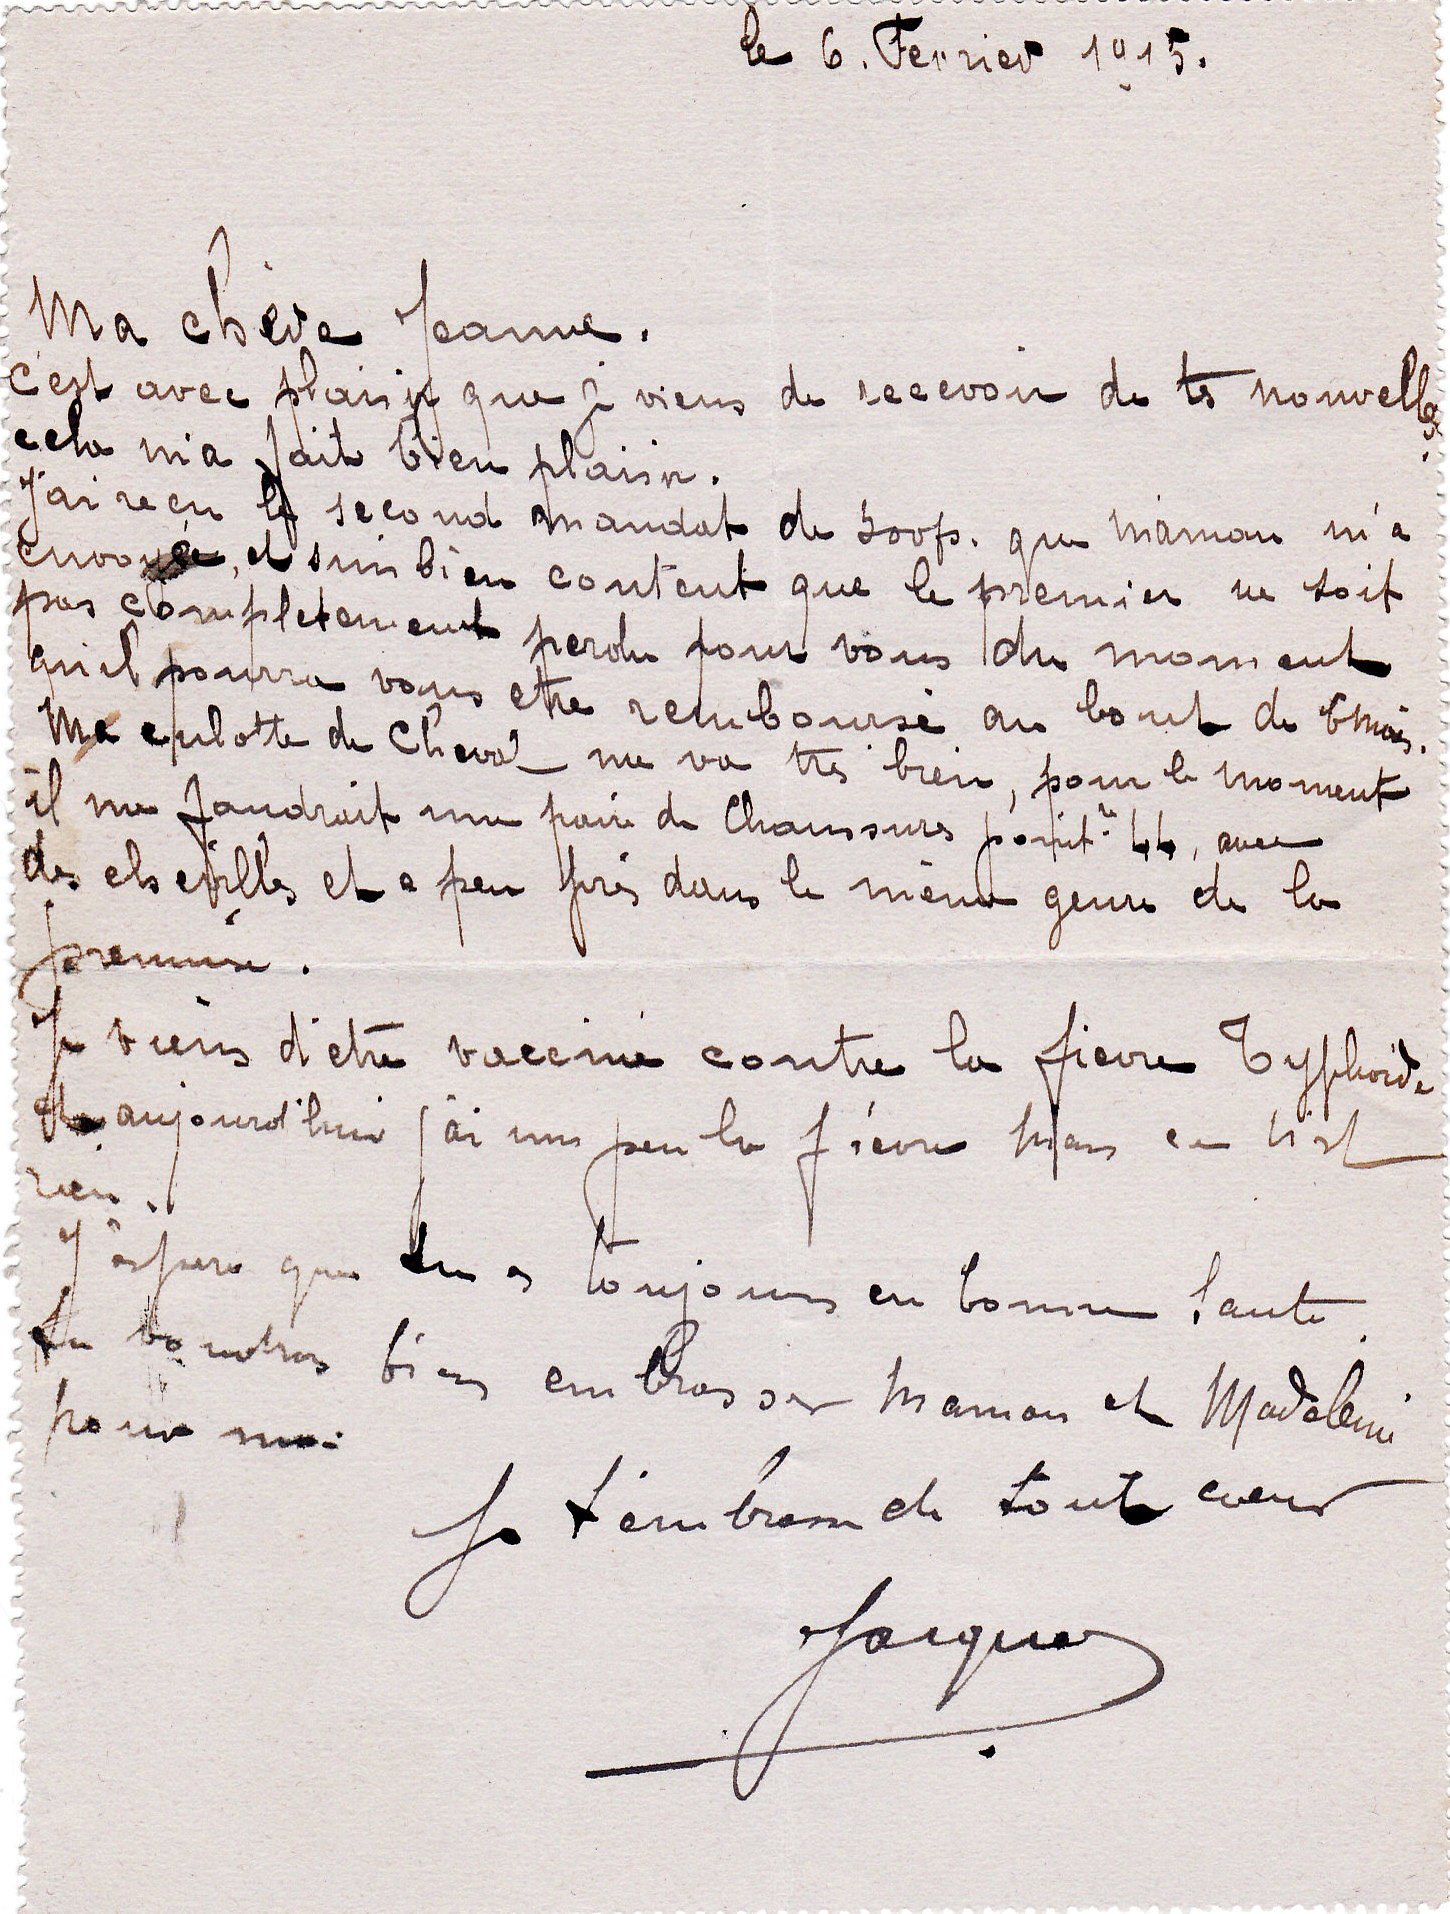 le 6. Fevrier 1915.
Ma chère Jeanne.
c'est avec plaisir que je viens de recevoir de tes nouvelles.
cela m'a fait bien plaisir.
J'ai reçu le second mandat de que maman m'a
envoyé, et suis bien content que le premier ne soit
pas completement perdu pour vous du moment
qu'il pourra vous etre remboursé au bout de 6 mois.
Ma culotte de Cheval me va très bien, pour le moment
il me faudrait une paire de Chaussures pointre 44, avec
des chevilles et a peu près dans le même genre de la
premiere.
Je viens d'etre vacciné contre la fievre Typhoïde
et aujourd'hui j'ai un peu la fièvre mais ce n'est
rien.
J'espere que tu es toujours en bonne santé.
tu voudras bien embrasser Maman et Madeleine
pour moi
Je t'embrasse de tout coeur
Jacques